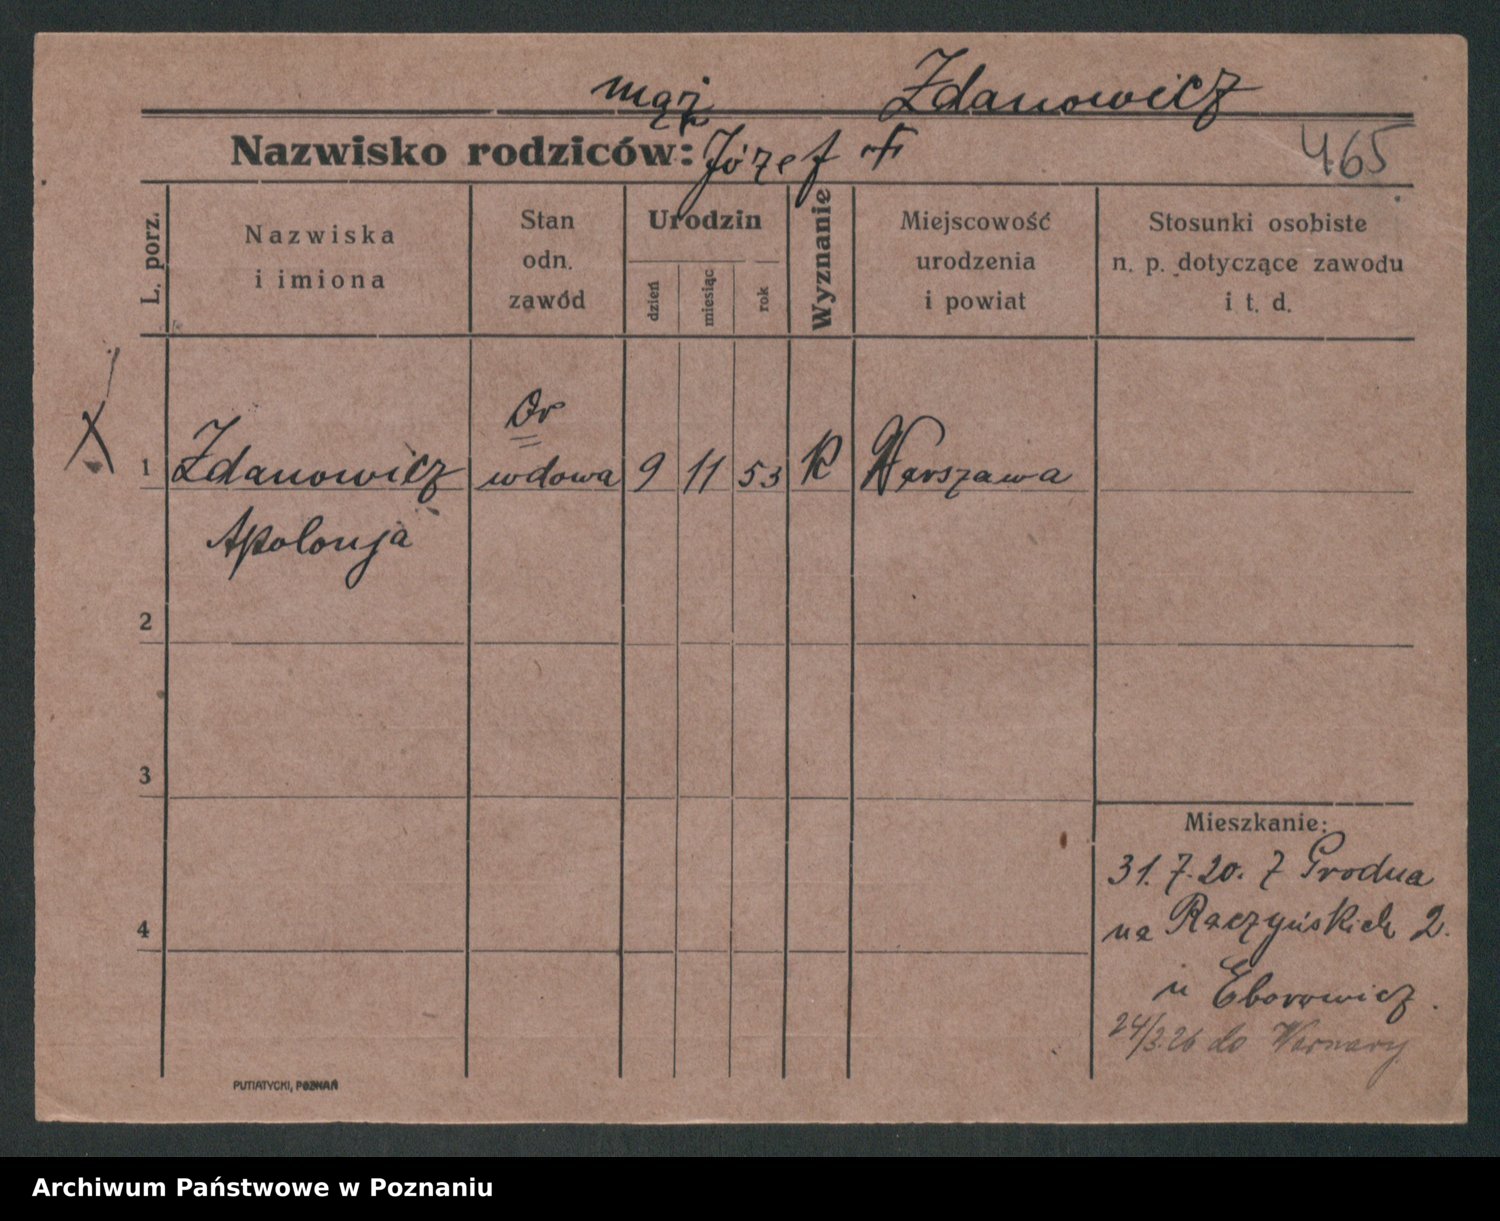 mąż Zdanowicz
Nazwisko rodziców: Józef
465
L. porz.
Nazwiska
i imiona
Stan
odn.
zawód
Urodzin
dzień
miesiąc
rok
Wyznanie
Miejscowość
urodzenia
i powiat
Stosunki osobiste
n. p. dotyczące zawodu
i t. d.
1 Zdanowicz wdowa 9 11 53 K Warszawa
Apolonja
2
3
4
Mieszkanie:
31. 7. 20. z Grodna
na Raczyńskich 2.
u
24/3.26 do
PUTIATYCKI, POZNAŃ
Archiwum Państwowe w Poznaniu